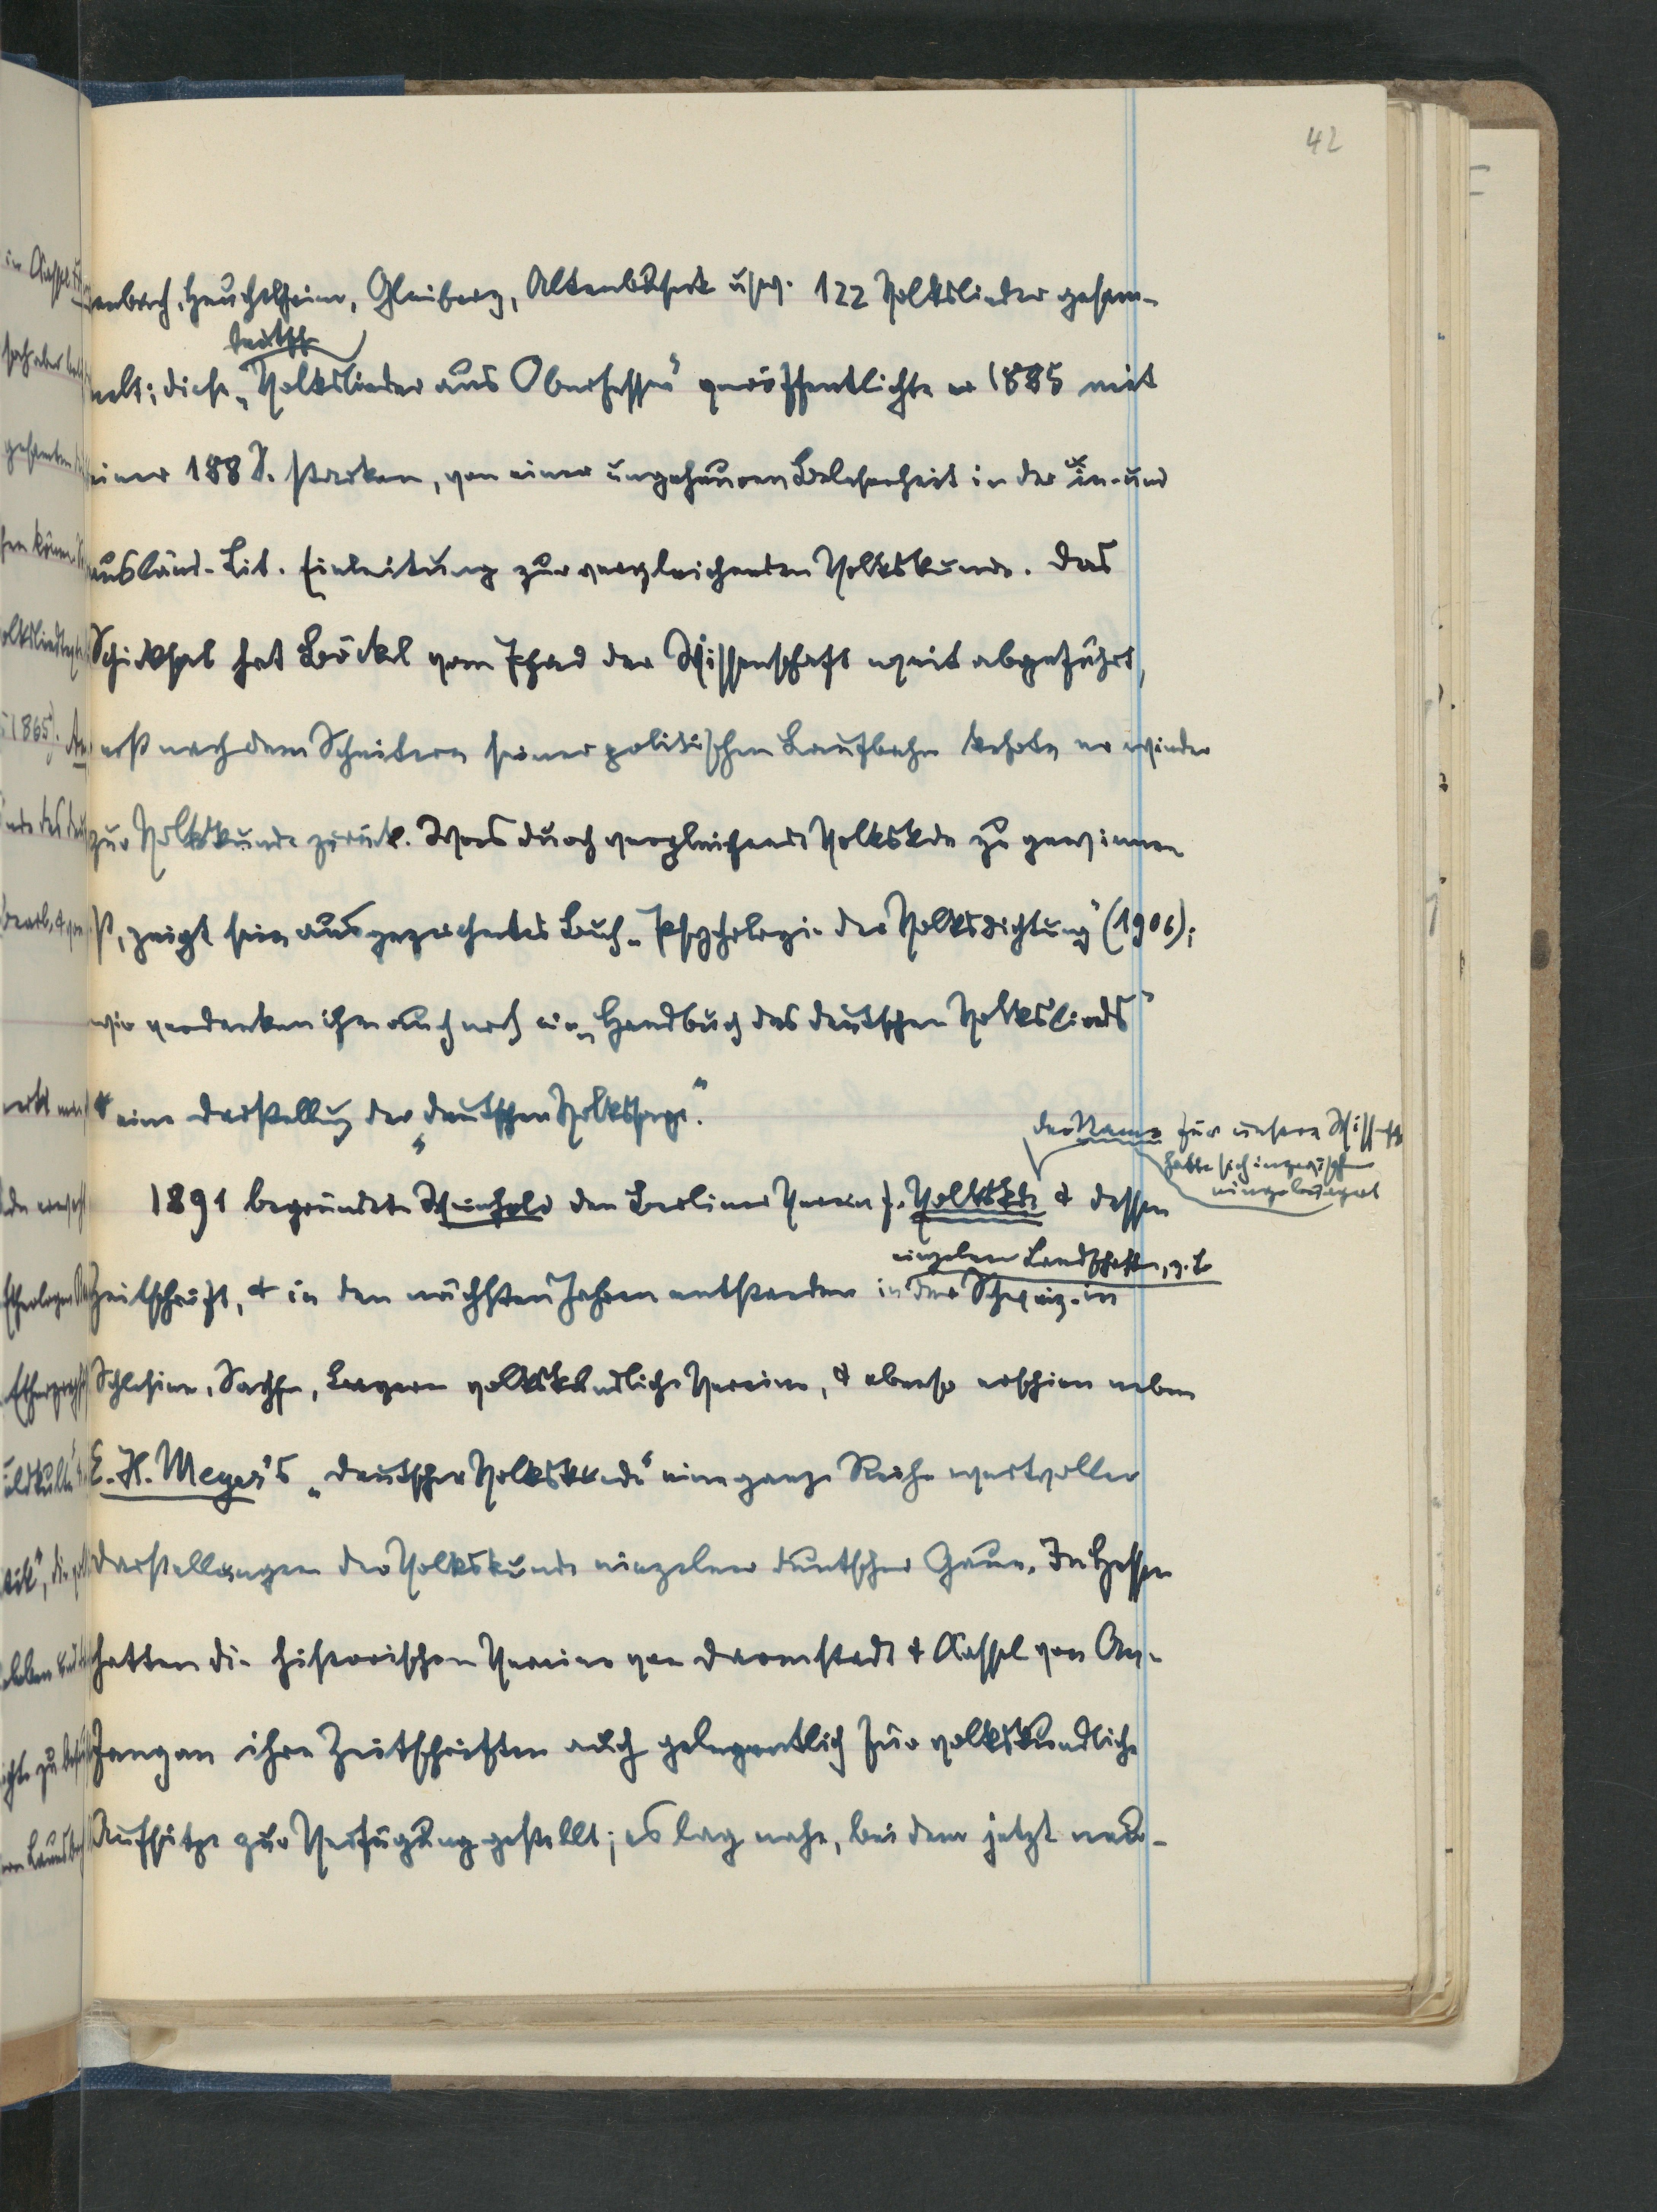 42
enbach, Heuchelheim, Gleiberg, Altenbuseck usw. 122 Volkslieder gesam-
melt; diese „Volkslieder aus Oberhessen" veröffentlichte er 1885 mit
einer 188 S. starken, von einer ungeheuren Belesenheit in der in- und
ausländ. Lit. Einleitung zur vergleichenden Volkskunde. Das
Schicksal hat Böckel vom Pfad der Wissenschaft weit abgeführt,
erst nach dem Scheitern seiner politischen Laufbahn kehrte er wieder
zur Volkskunde zurück. Was durch vergleichende Volkskde zu gewinnen
ist, zeigt sein ausgezeichnetes Buch „Psychologie der Volksdichtung" (1906);
wir verdanken ihm auch noch ein „Handbuch des deutschen Volkslieds"
& eine Darstellung der „deutschen Volkssage."
der Name für unsere Wissensch
hatte sich inzwischen
eingebürgert
1891 begründete Weinhold den Berliner Verein f. Volkskde & dessen
einzelnen Landschaften, z. B.
Zeitschrift, & in den nächsten Jahren entstanden in der Schweiz, in
Schlesien, Sachsen, Bayern volkskundliche Vereine, & ebenso erschien neben
E. H. Meyer's „Deutscher Volkskunde" eine ganze Reihe wertvoller
Darstellungen der Volkskunde einzelner deutscher Gaue. In Hessen
hatten die historischen Vereine von Darmstadt & Kassel von An-
fang an ihre Zeitschriften auch gelegentlich für volkskundliche
Aufsätze zur Verfügung gestellt; es lag nahe, bei dem jetzt neu-